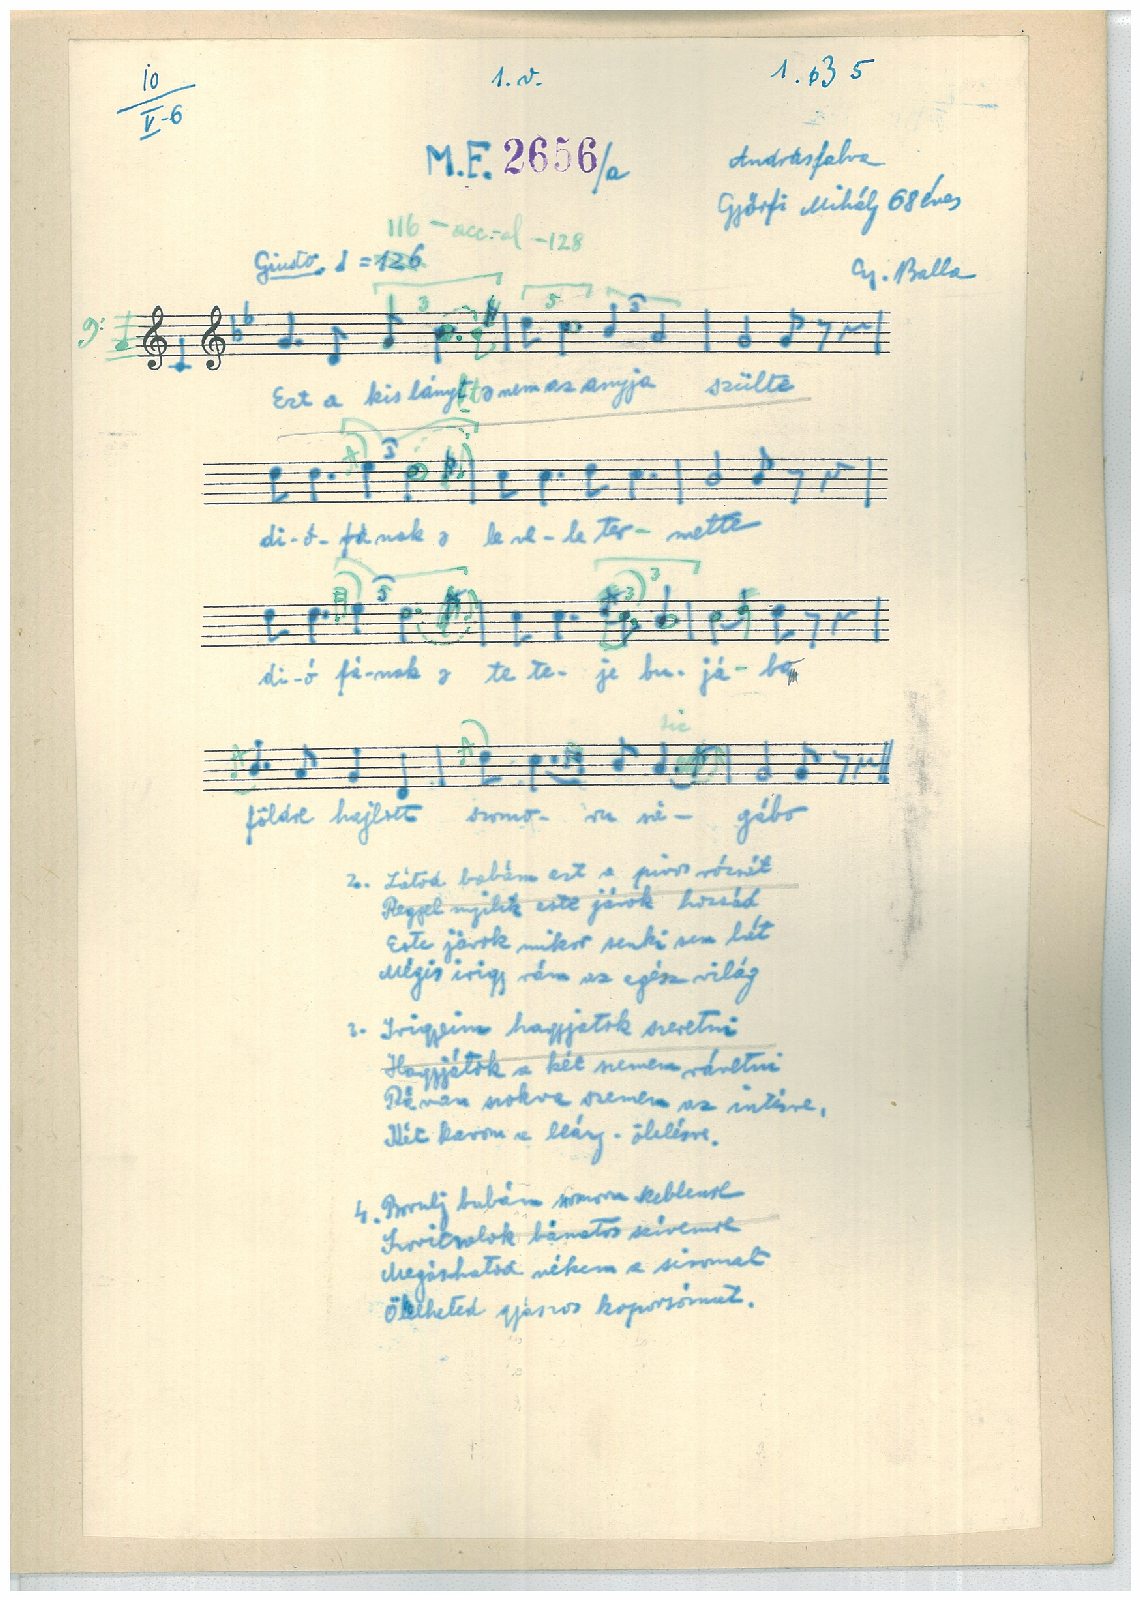 10
V-6
1.v.
1.b3 5
M.F. 2656/a
Andrásfalva
Győrfi Mihály 68 éves
116 - acc. al - 128
Giusto. = 126
Gy. Balla
3 5 3
Ezt a kis lányt nem az anyja szülte
3
di-ó-fának ə le ve-le ter-mette
5 3 3
di-ó fá-nak ə te te-je bu-já-ba
sic
földre hajlott szomo-ru sá-gábo
2. Látod babám ezt a piros rózsát
Reggel nyílik este járok hozzád
Este járok mikor senki sem lát
Mégis irigy rám az egész világ
3. Irigyeim hagyjatok szeretni
Hagyjátok a két szemem rávetni
Rá van szokva szemem az intésre,
Két karom a leány-ölelésre.
4. Borulj babám szomoru keblemre
bánatos szivemre
Megáshatod nékem a siromat
Ölelheted gyászos koporsómat.